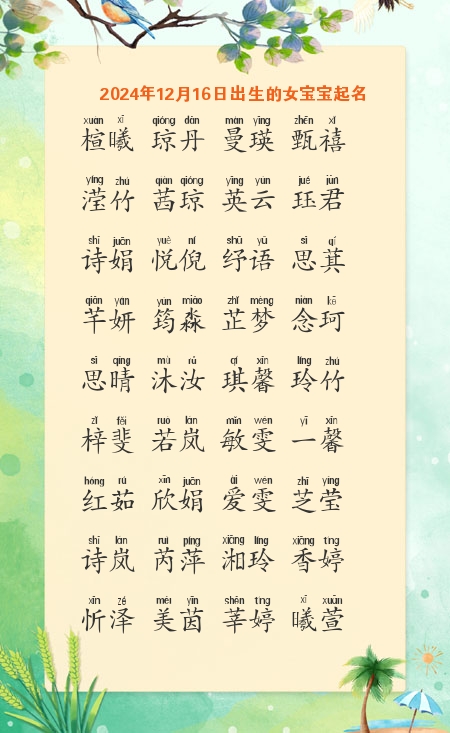 2024年12月16日出生的女宝宝起名
xuān xī qióng dān màn yīng zhēn xǐ
楦曦 琼丹 曼瑛 甄禧
yíng zhú qiàn qióng yīng yún jué jūn
滢竹 茜琼 英云 珏君
shī juān yuè ní shū yǔ sī qí
诗娟 悦倪 纾语 思萁
qiān yán yún miǎo zhǐ mèng niàn kē
芊妍 筠淼 芷梦 念珂
sī qíng mù rǔ qí xīn líng zhú
思晴 沐汝 琪馨 玲竹
zǐ fěi ruò lán mǐn wén yī xīn
梓斐 若岚 敏雯 一馨
hóng rú xīn juān ài wén zhī yíng
红茹 欣娟 爱雯 芝莹
shī lán ruì píng xiāng líng xiāng tíng
诗岚 芮萍 湘玲 香婷
xīn zé měi yīn shēn tíng xī xuān
忻泽 美茵 莘婷 曦萱